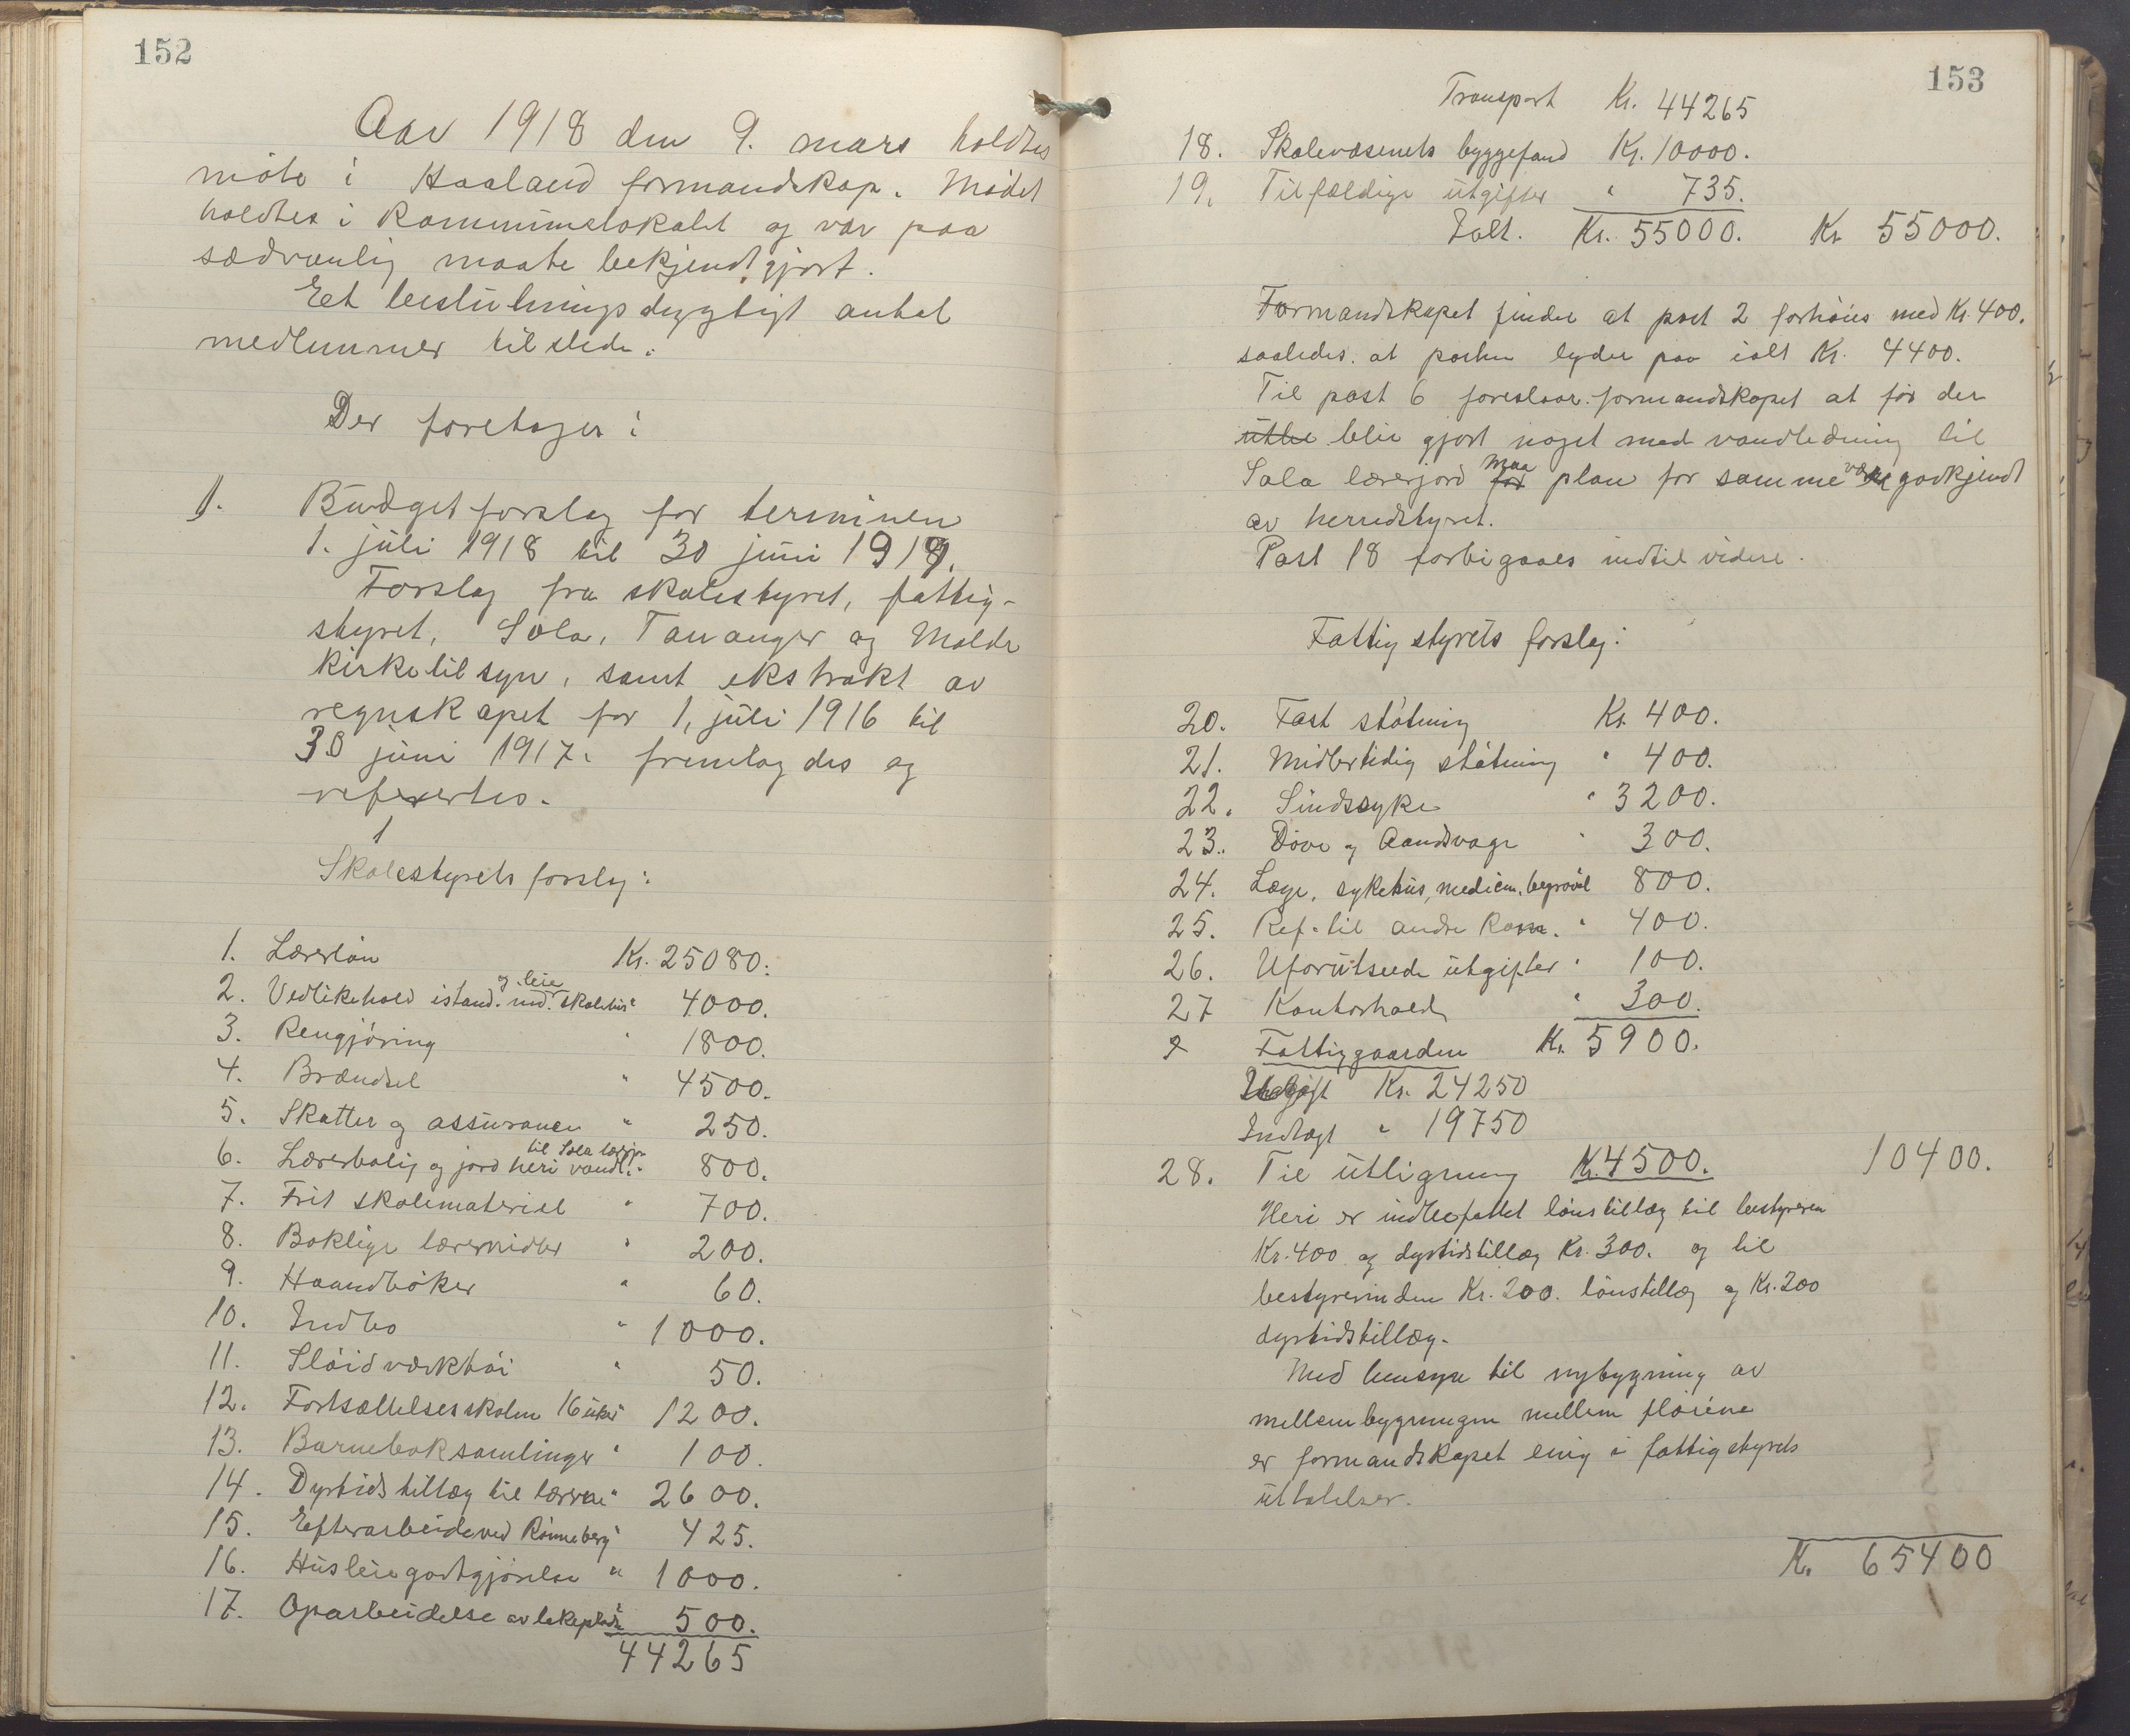 152
Aar 1918 den 9. mars holdtes
möte i Haaland formandskap. Mödet
holdtes i Kommunelokalet og var paa
sædvanlig maate bekjendtgjort.
Eet beslutningsdygtigt antal
medlemmer tilstede.
Der foretoges:
1. Budgetforslag for terminen
1. juli 1918 til 30 juni 1919.
Forslag fra skolestyret, fattig-
styret, Sola, Tananger og Malde
kirketilsyn, samt ekstrakt av
regnskapet for 1. juli 1916 til
30 juni 1917. fremlagdes og
referertes.
1
Skolestyrets forslag:
1. Lærerlön Kr. 25080.
og leie
2. Vedlikehold istand. ind. skolehus " 4000.
3. Rengjöring " 1800.
4. Brændsel " 4500.
5. Skatter og assurancen " 250.
til Sola lærerjr
6. Lærerbolig og jord heri vandl. " 800.
7. Frit skolemateriel " 700.
8. Boklige læremidler " 200.
9. Haandböker " 60.
10. Indbo " 1000.
11. Slöidverktöi " 50.
12. Fortsættelsesskolen 16 uker " 1200.
13. Barneboksamlinger " 100.
14. Dyrtidstillæg til lærerne " 2600.
15. Efterarbeide ved Rönneberg " 425.
16. Husleiegodtgjörelse " 1000.
17. Oparbeidelse av lekeplads " 500.
44265
153
Transport Kr. 44265
18. Skolevæsenets byggefond Kr. 10000.
19. Tilfældige utgifter " 735.
Ialt. Kr. 55000. Kr 55000.
Formandskapet finder at post 2 forhöies med Kr. 400.
saaledes. at posten lyder paa ialt Kr. 4400.
Til post 6 foreslaar formandskapet at för der
utbe blir gjort noget med vandledning til
maa være
Sola lærerjord for plan for samme godkjendt
av herredstyret.
Post 18 forbigaaes indtil videre.
Fattigstyrets forslag:
20. Fast stötning Kr. 400.
21. Midlertidig stötning " 400.
22. Sindssyke " 3200.
23. Döve og Aandsvage " 300.
24. Læge, sykehus, medicin, begravl 800.
25. Ref. til andre Kom. " 400.
26. Uforutseede utgifter " 100.
27 Kontorhold " 300.
Fattiggaarden Kr. 5900.
Utgift Kr. 24250
Indtægt " 19750
28. Til utligning Kr. 4500. 10400.
Heri er indbefattet lönstillæg til bestyreren
Kr. 400 og dyrtidstillæg Kr. 300. og til
bestyrerinden Kr. 200. lönstillæg og Kr. 200
dyrtidstillæg.
Med hensyn til nybygning av
mellembygningen mellem flöiene
er formandskapet enig i fattigstyrets
uttalelser.
Kr. 65400